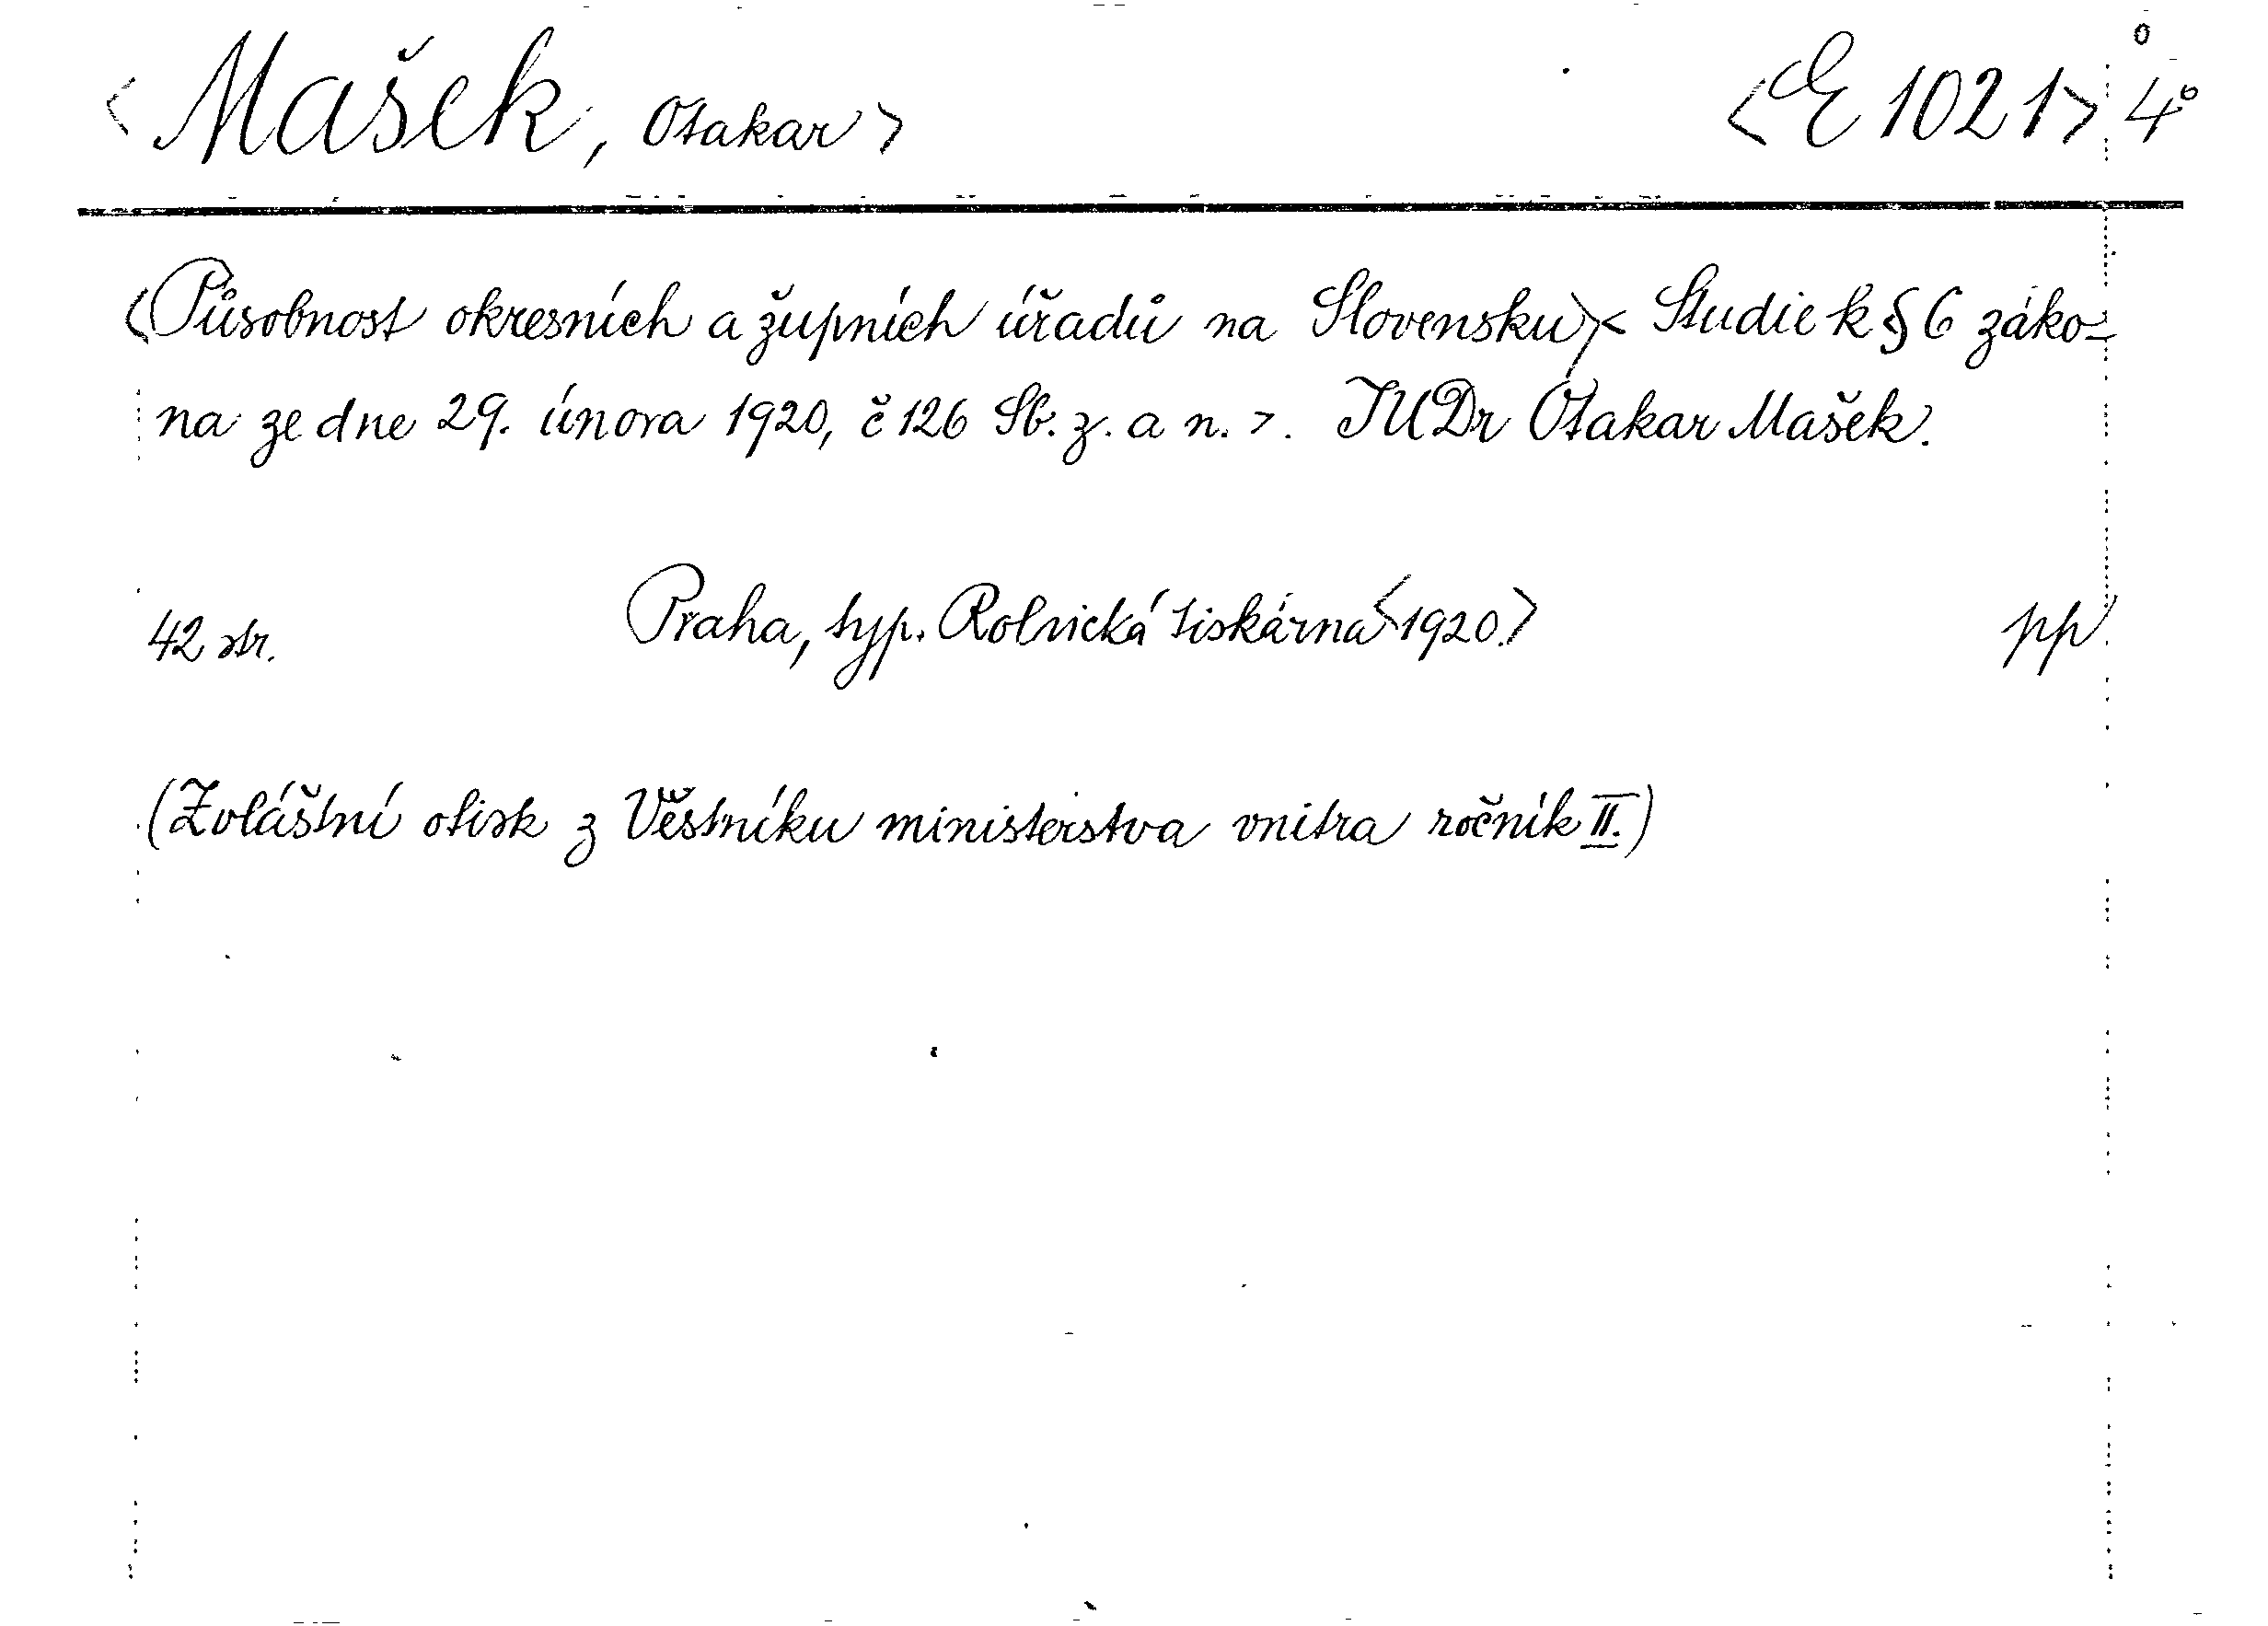 <Mašek, Otakar> <E 1021> 4°
<Působnost okresních a župních úřadů na Slovensku>< Studie k § 6 záko-
na ze dne 29. února 1920, č 126 Sb. z. a n. >. JUDr Otakar Mašek.
42 str. Praha, typ. Rolnická tiskárna <1920.> pp
(Zvláštní otisk z Věstníku ministerstva vnitra ročník II.)